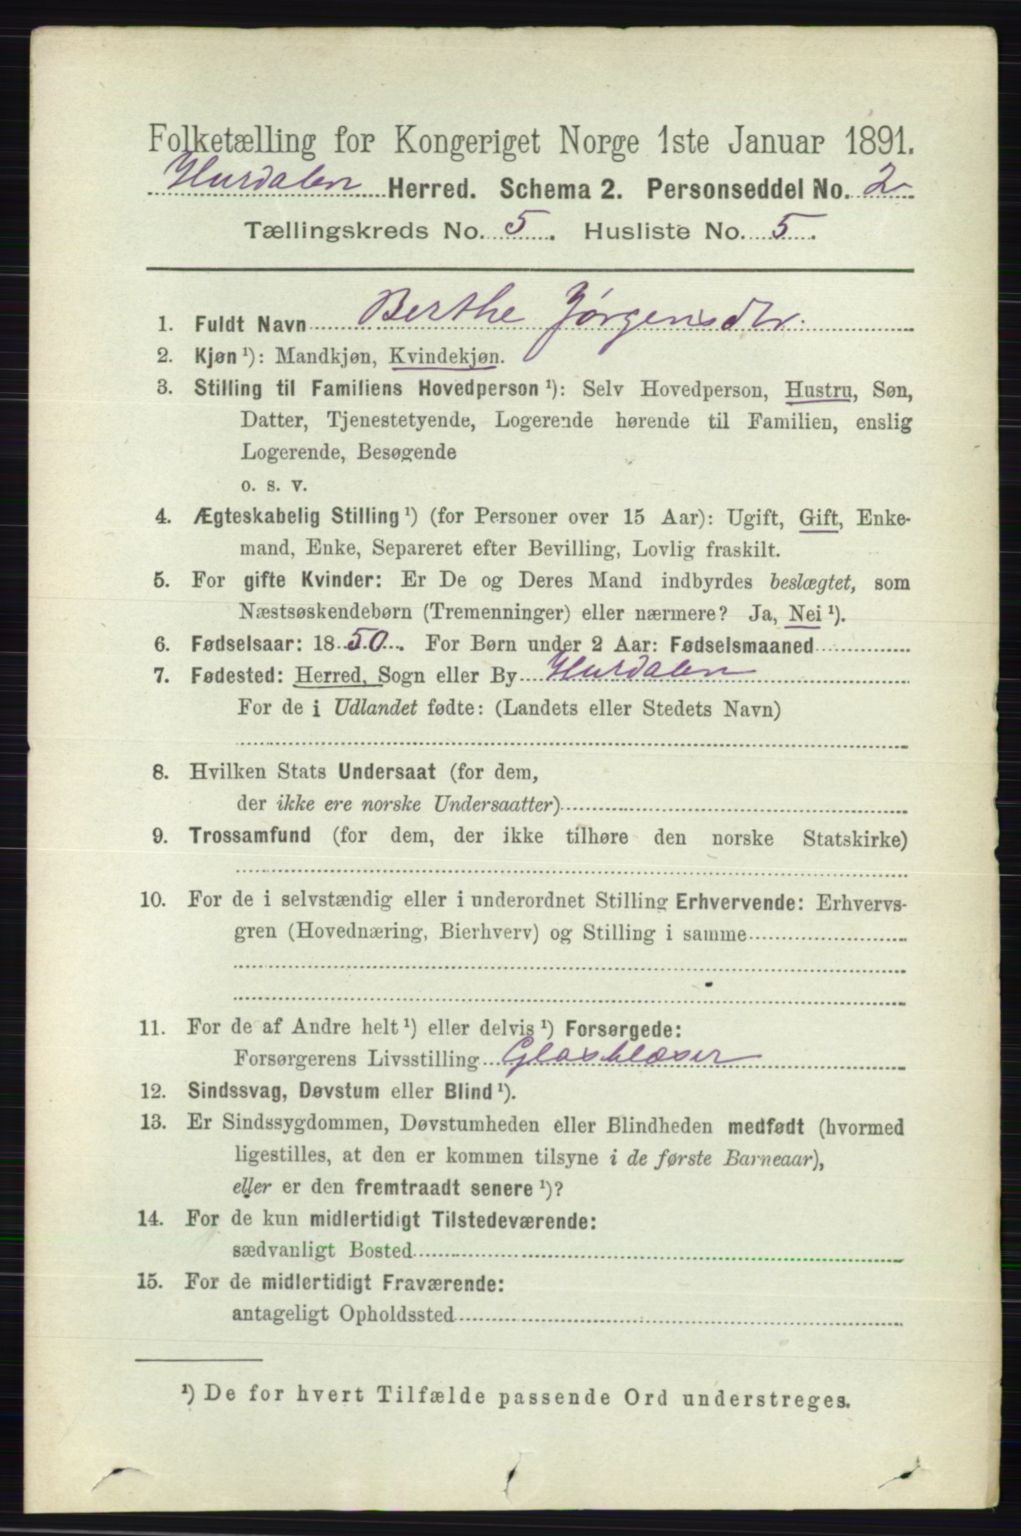 Folketælling for Kongeriget Norge 1ste Januar 1891.
Hurdalen Herred. Schema 2. Personseddel No. 2
Tællingskreds No. 5. Husliste No. 5.
1. Fuldt Navn Berthe Jørgensdtr.
2. Kjøn ¹): Mandkjøn, Kvindekjøn.
3. Stilling til Familiens Hovedperson ¹): Selv Hovedperson, Hustru, Søn,
Datter, Tjenestetyende, Logerende hørende til Familien, enslig
Logerende, Besøgende
o. s. v.
4. Ægteskabelig Stilling ¹) (for Personer over 15 Aar): Ugift, Gift, Enke-
mand, Enke, Separeret efter Bevilling, Lovlig fraskilt.
5. For gifte Kvinder: Er De og Deres Mand indbyrdes beslægtet, som
Næstsøskendebørn (Tremenninger) eller nærmere? Ja, Nei ¹).
6. Fødselsaar: 1850. For Børn under 2 Aar: Fødselsmaaned
7. Fødested: Herred, Sogn eller By Hurdalen
For de i Udlandet fødte: (Landets eller Stedets Navn)
8. Hvilken Stats Undersaat (for dem,
der ikke ere norske Undersaatter)
9. Trossamfund (for dem, der ikke tilhøre den norske Statskirke)
10. For de i selvstændig eller i underordnet Stilling Erhvervende: Erhvervs-
gren (Hovednæring, Bierhverv) og Stilling i samme
11. For de af Andre helt ¹) eller delvis ¹) Forsørgede:
Forsørgerens Livsstilling Glasblæser
12. Sindssvag, Døvstum eller Blind ¹).
13. Er Sindssygdommen, Døvstumheden eller Blindheden medfødt (hvormed
ligestilles, at den er kommen tilsyne i de første Barneaar),
eller er den fremtraadt senere ¹)?
14. For de kun midlertidigt Tilstedeværende:
sædvanligt Bosted
15. For de midlertidigt Fraværende:
antageligt Opholdssted
¹) De for hvert Tilfælde passende Ord understreges.